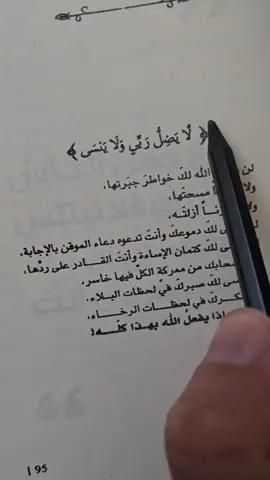 ﴿ لَّا يَضِلُّ رَبِّي وَلَا يَنسَى ﴾
لن الله لكَ خواطرَ جبَرتها،
ولا مسحتها،
ولا أزلتَـه،
لكَ دموعكَ وأنتَ تدعوه دعاء الموقن بالإجابة،
لكَ كتمان الإساءة وأنتَ القـادر على ردِّها،
من معركة الكلّ فيها خاسر،
لكَ صبركَ في لحظات البلاء،
في لحظـات الرخـاء،
يفعلُ الله بهـذا كلّـه!
195